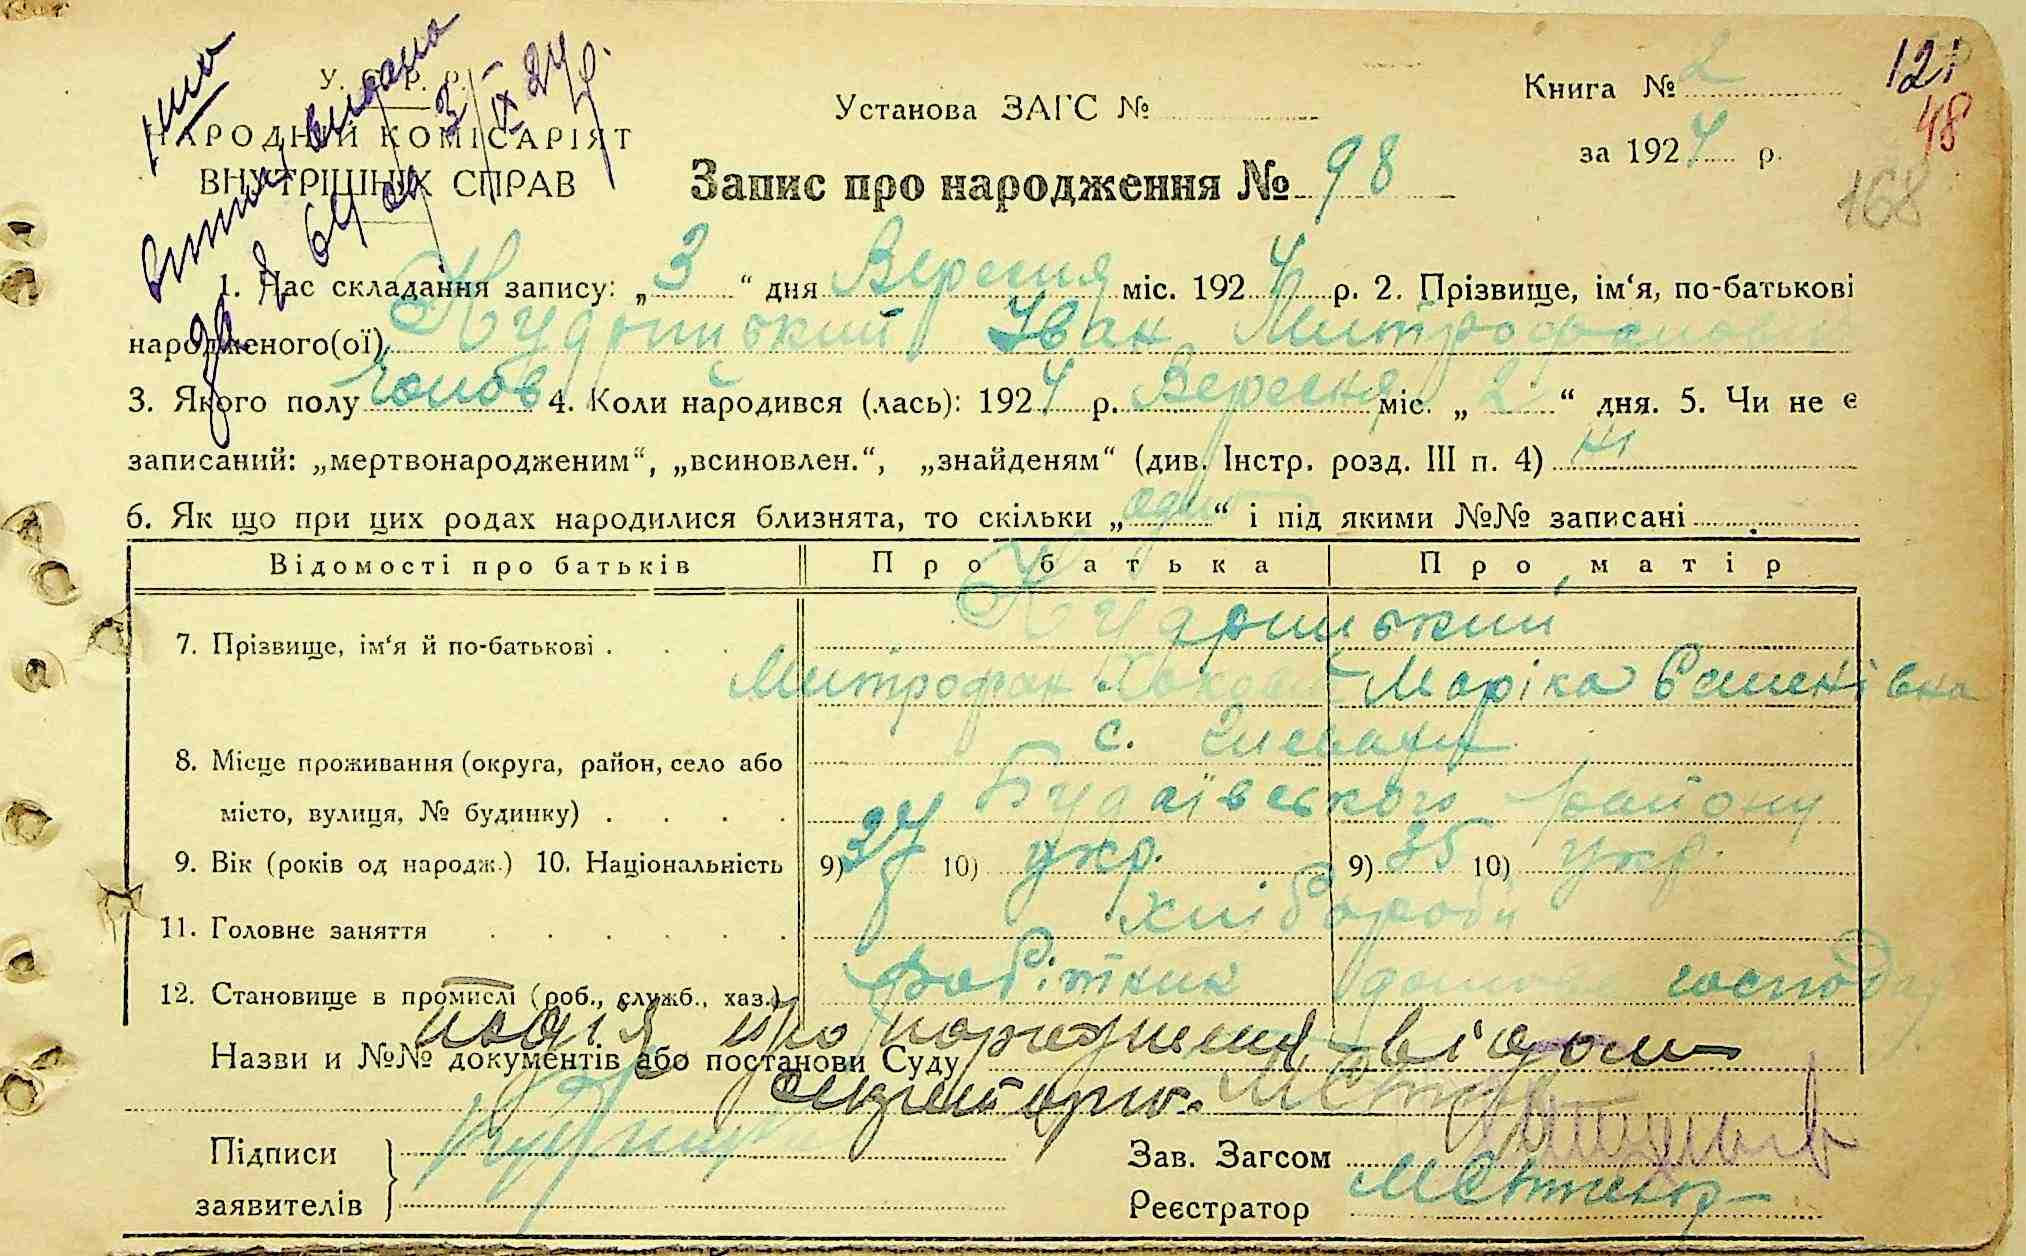 У. С. Р. Р.
НАРОДНІЙ КОМІСАРІЯТ
ВНУТРІШНІХ СПРАВ
витяг видано
за № 64 3/IX 24 р.
Установа ЗАГС №
Книга № 2
за 1924 р.
121
48
168
Запис про народження № 98
1. Час складання запису: „3“ дня Вересня міс. 1924 р. 2. Прізвище, ім‘я, по-батькові
народженого(ої) Кудрицький Іван Митрофанович
3. Якого полу чолов 4. Коли народився (лась): 1924 р. Вересня міс. „2“ дня. 5. Чи не є
записаний: „мертвонародженим“, „всиновлен.“, „знайденям“ (див. Інстр. розд. III п. 4) ні
6. Як що при цих родах народилися близнята, то скільки „один“ і під якими №№ записані
Відомості про батьків Про батька Про матір
7. Прізвище, ім‘я й по-батькові Кудрицький
Митрофан Маріка
8. Місце проживання (округа, район, село або с.
місто, вулиця, № будинку) Будаївського району
9. Вік (років од народж.) 10. Національність 9) 37 10) укр. 9) 35 10) укр.
11. Головне заняття хлібороби
12. Становище в промислі (роб., служб., хаз.) робітник господар
подія про народження відом
Назви и №№ документів або постанови Суду
Підписи
заявителів
Зав. Загсом
Реєстратор